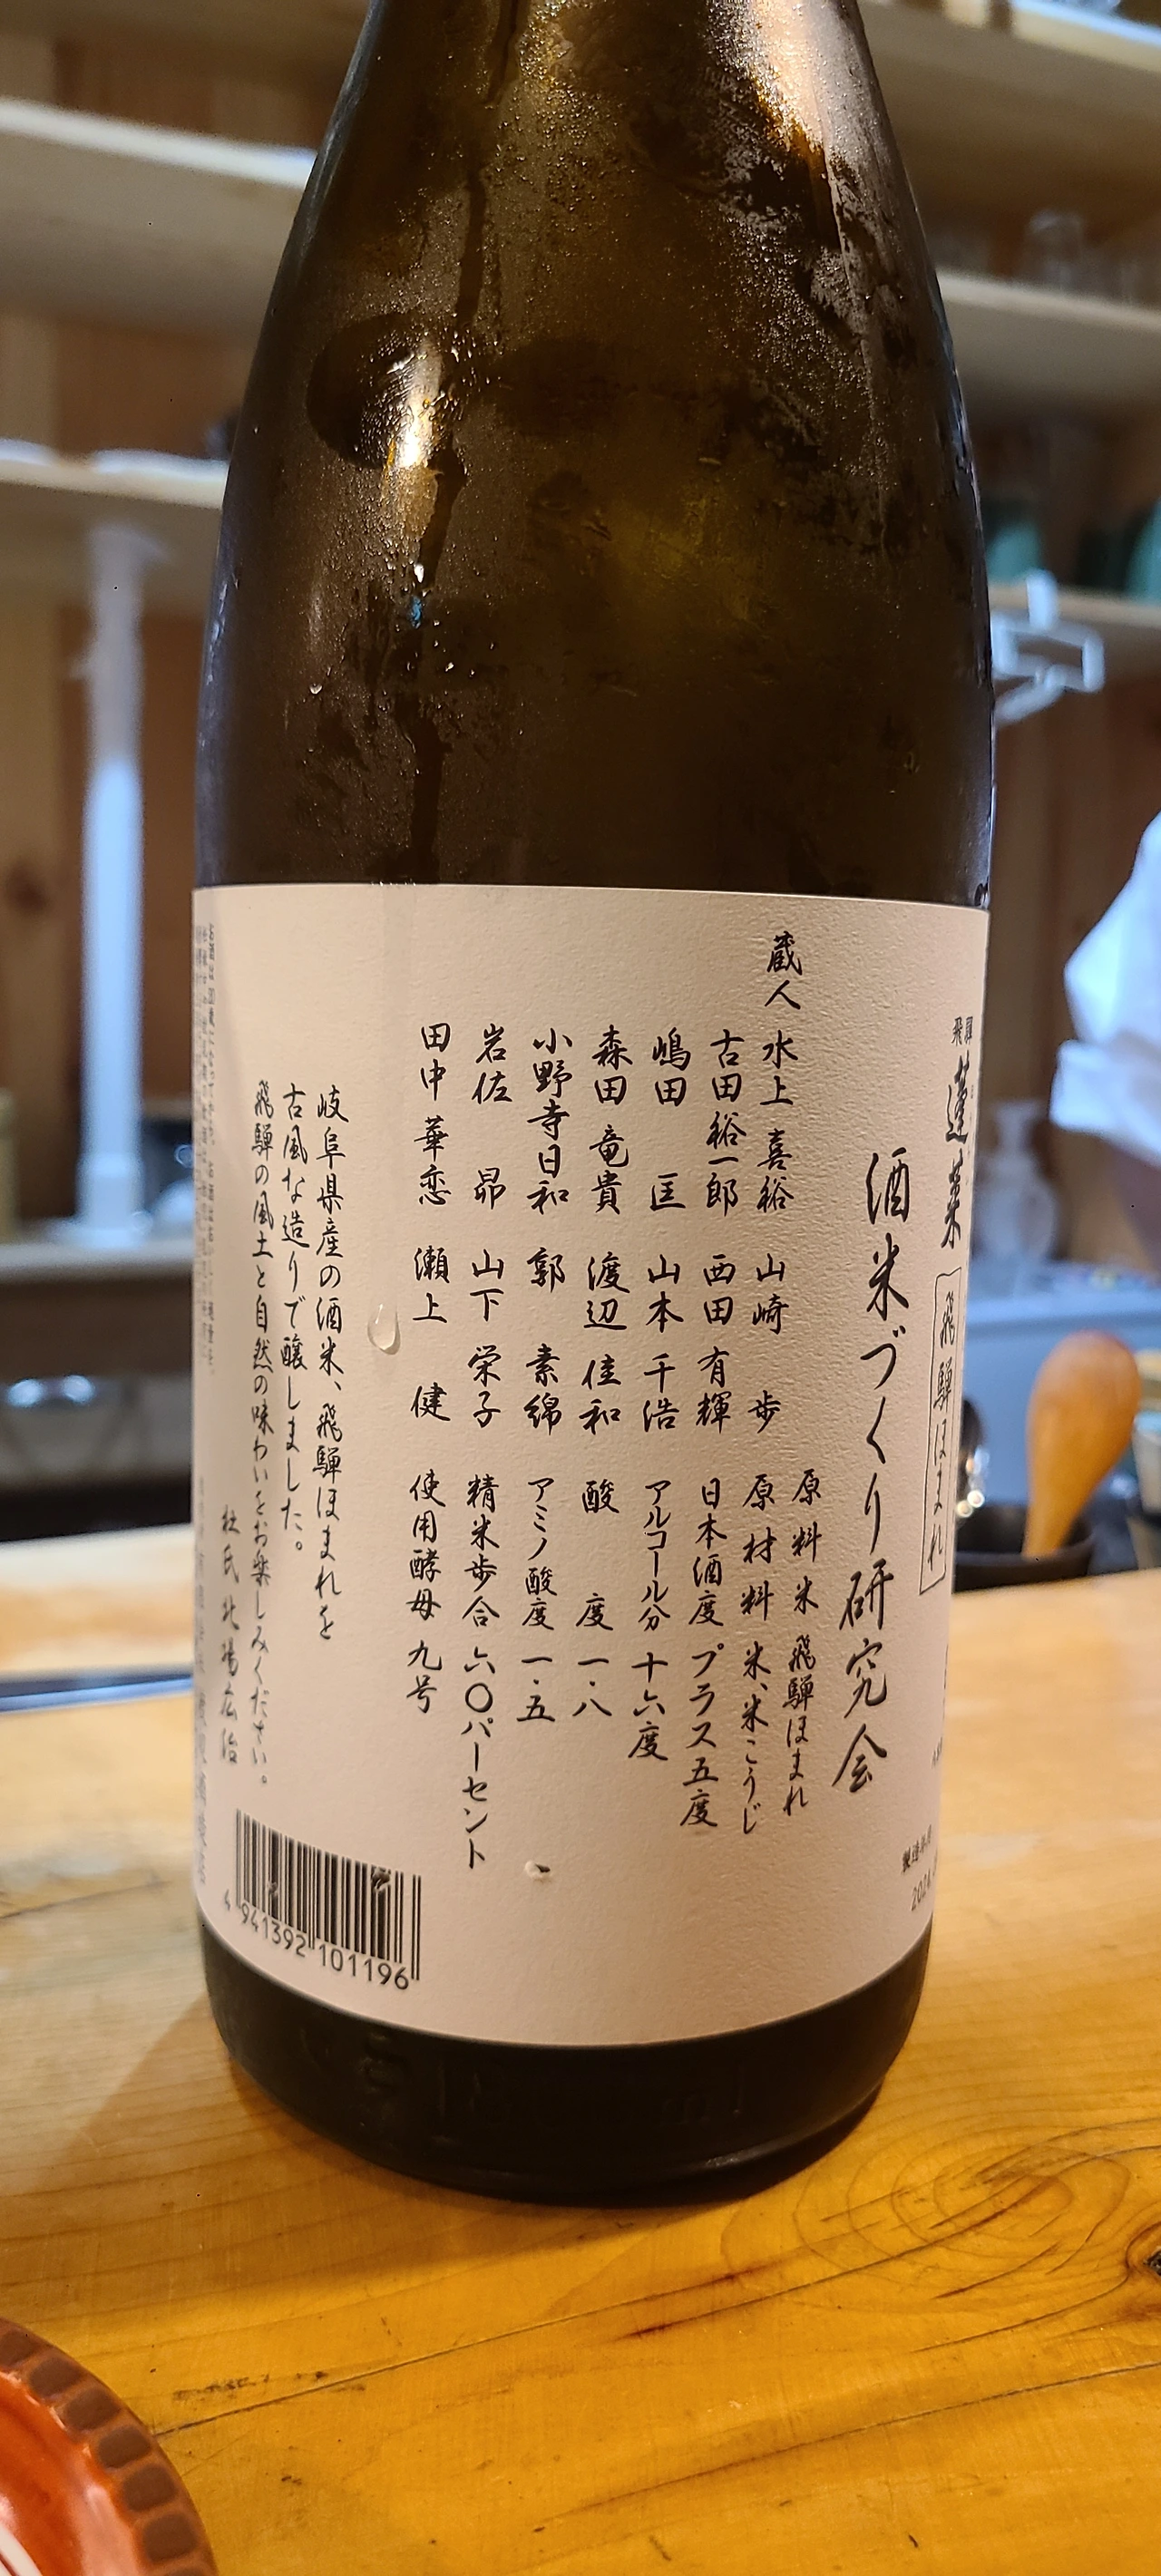 飛騨
蓬莱
飛騨ほまれ
酒米づくり研究会
原料米 飛騨ほまれ
原材料 米、米こうじ
日本酒度 プラス五度
アルコール分 十六度
酸度 一・八
アミノ酸度 一・五
精米歩合 六〇パーセント
使用酵母 九号
蔵人 水上 喜裕 山崎 歩
古田裕一郎 西田 有輝
嶋田 匡 山本 千浩
森田 竜貴 渡辺 佳和
小野寺日和 郭 素綿
岩佐 昴 山下 栄子
田中 華恋 瀬上 健
岐阜県産の酒米、飛騨ほまれを
古風な造りで醸しました。
飛騨の風土と自然の味わいをお楽しみください。
杜氏 北場広治
4 941392 101196